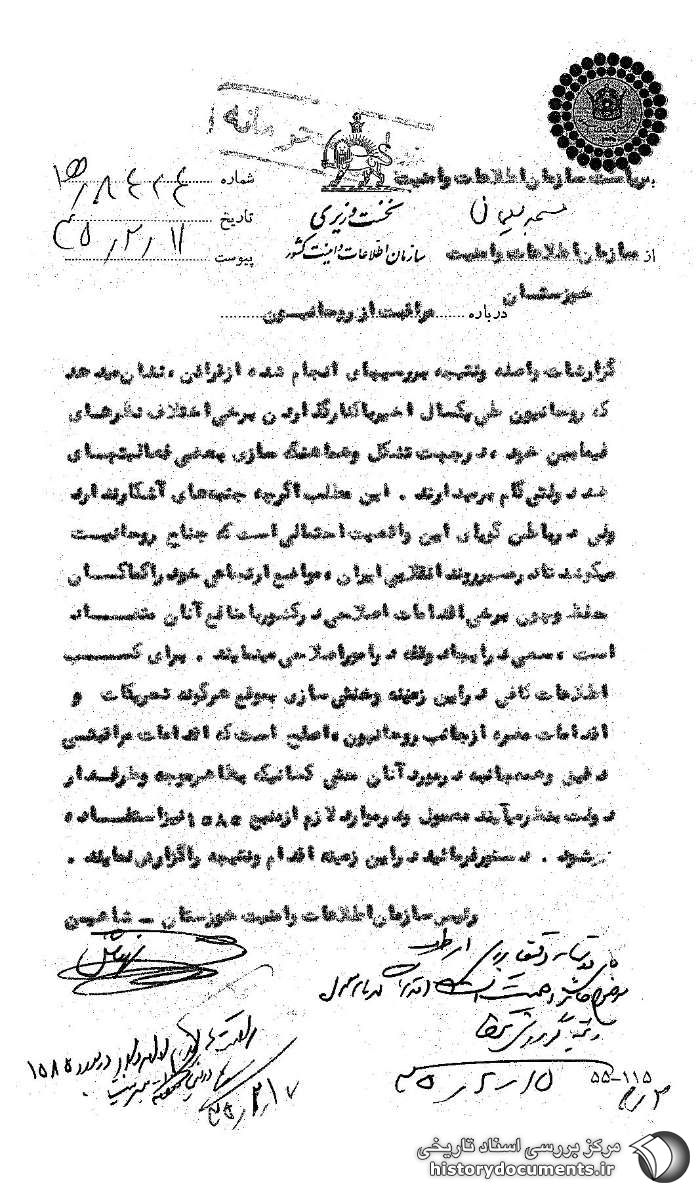 بریاست سازمان اطلاعات و امنیت
شماره
مسجدسلیمان
نخست وزیری
تاریخ ۴۵/۲/۱۱
از سازمان اطلاعات و امنیت
سازمان اطلاعات و امنیت کشور
پیوست
خوزستان
درباره مراقبت از روحانیون
گزارشات واصله ونتیجه بررسیهای انجام شده ازقرائن ، نشان میدهد
که روحانیون طی یکسال اخیرباکنارگذاردن برخی اختلاف نظرهای
فیمابین خود ، درجهت تشکل وهماهنگ سازی بعضی فعالیتهای
ضد دولتی گام برمیدارند . این مطلب اگرچه جنبه‌های آشکارندارد
ولی درباطن گویای این واقعیت احتمالی است که جناح روحانیت
میکوشند تادرمسیرروند انقلابی ایران ، مواضع ارتجاعی خودراکماکان
حفظ وچون برخی اقدامات اصلاحی درکشوربامنافع آنان متضاد
است ، سعی درایجاد وقفه درامور اصلاحی مینمایند . برای کسب
اطلاعات کافی دراین زمینه وخنثی سازی بموقع هرگونه تحریکات و
اقدامات مضره ازجانب روحانیون ، اصلح است که اقدامات مراقبتی
دقیق وهمه‌جانبه درمورد آنان حتی کسانیکه بظاهرموجه وطرفدار
دولت بنظرمیآیند معمول ودرموارد لازم ازمنبع ۱۵۸۵ نیزاستفاده
شود . دستورفرمائید دراین زمینه اقدام ونتیجه راگزارش نمایند .
رئیس سازمان اطلاعات وامنیت خوزستان – شاهین
درمورد ۱۵۸۵
۴۵/۲/۱۷
۴۵/۲/۱۵
۵۵-۱۱۵
مرکز بررسی اسناد تاریخی
historydocuments.ir